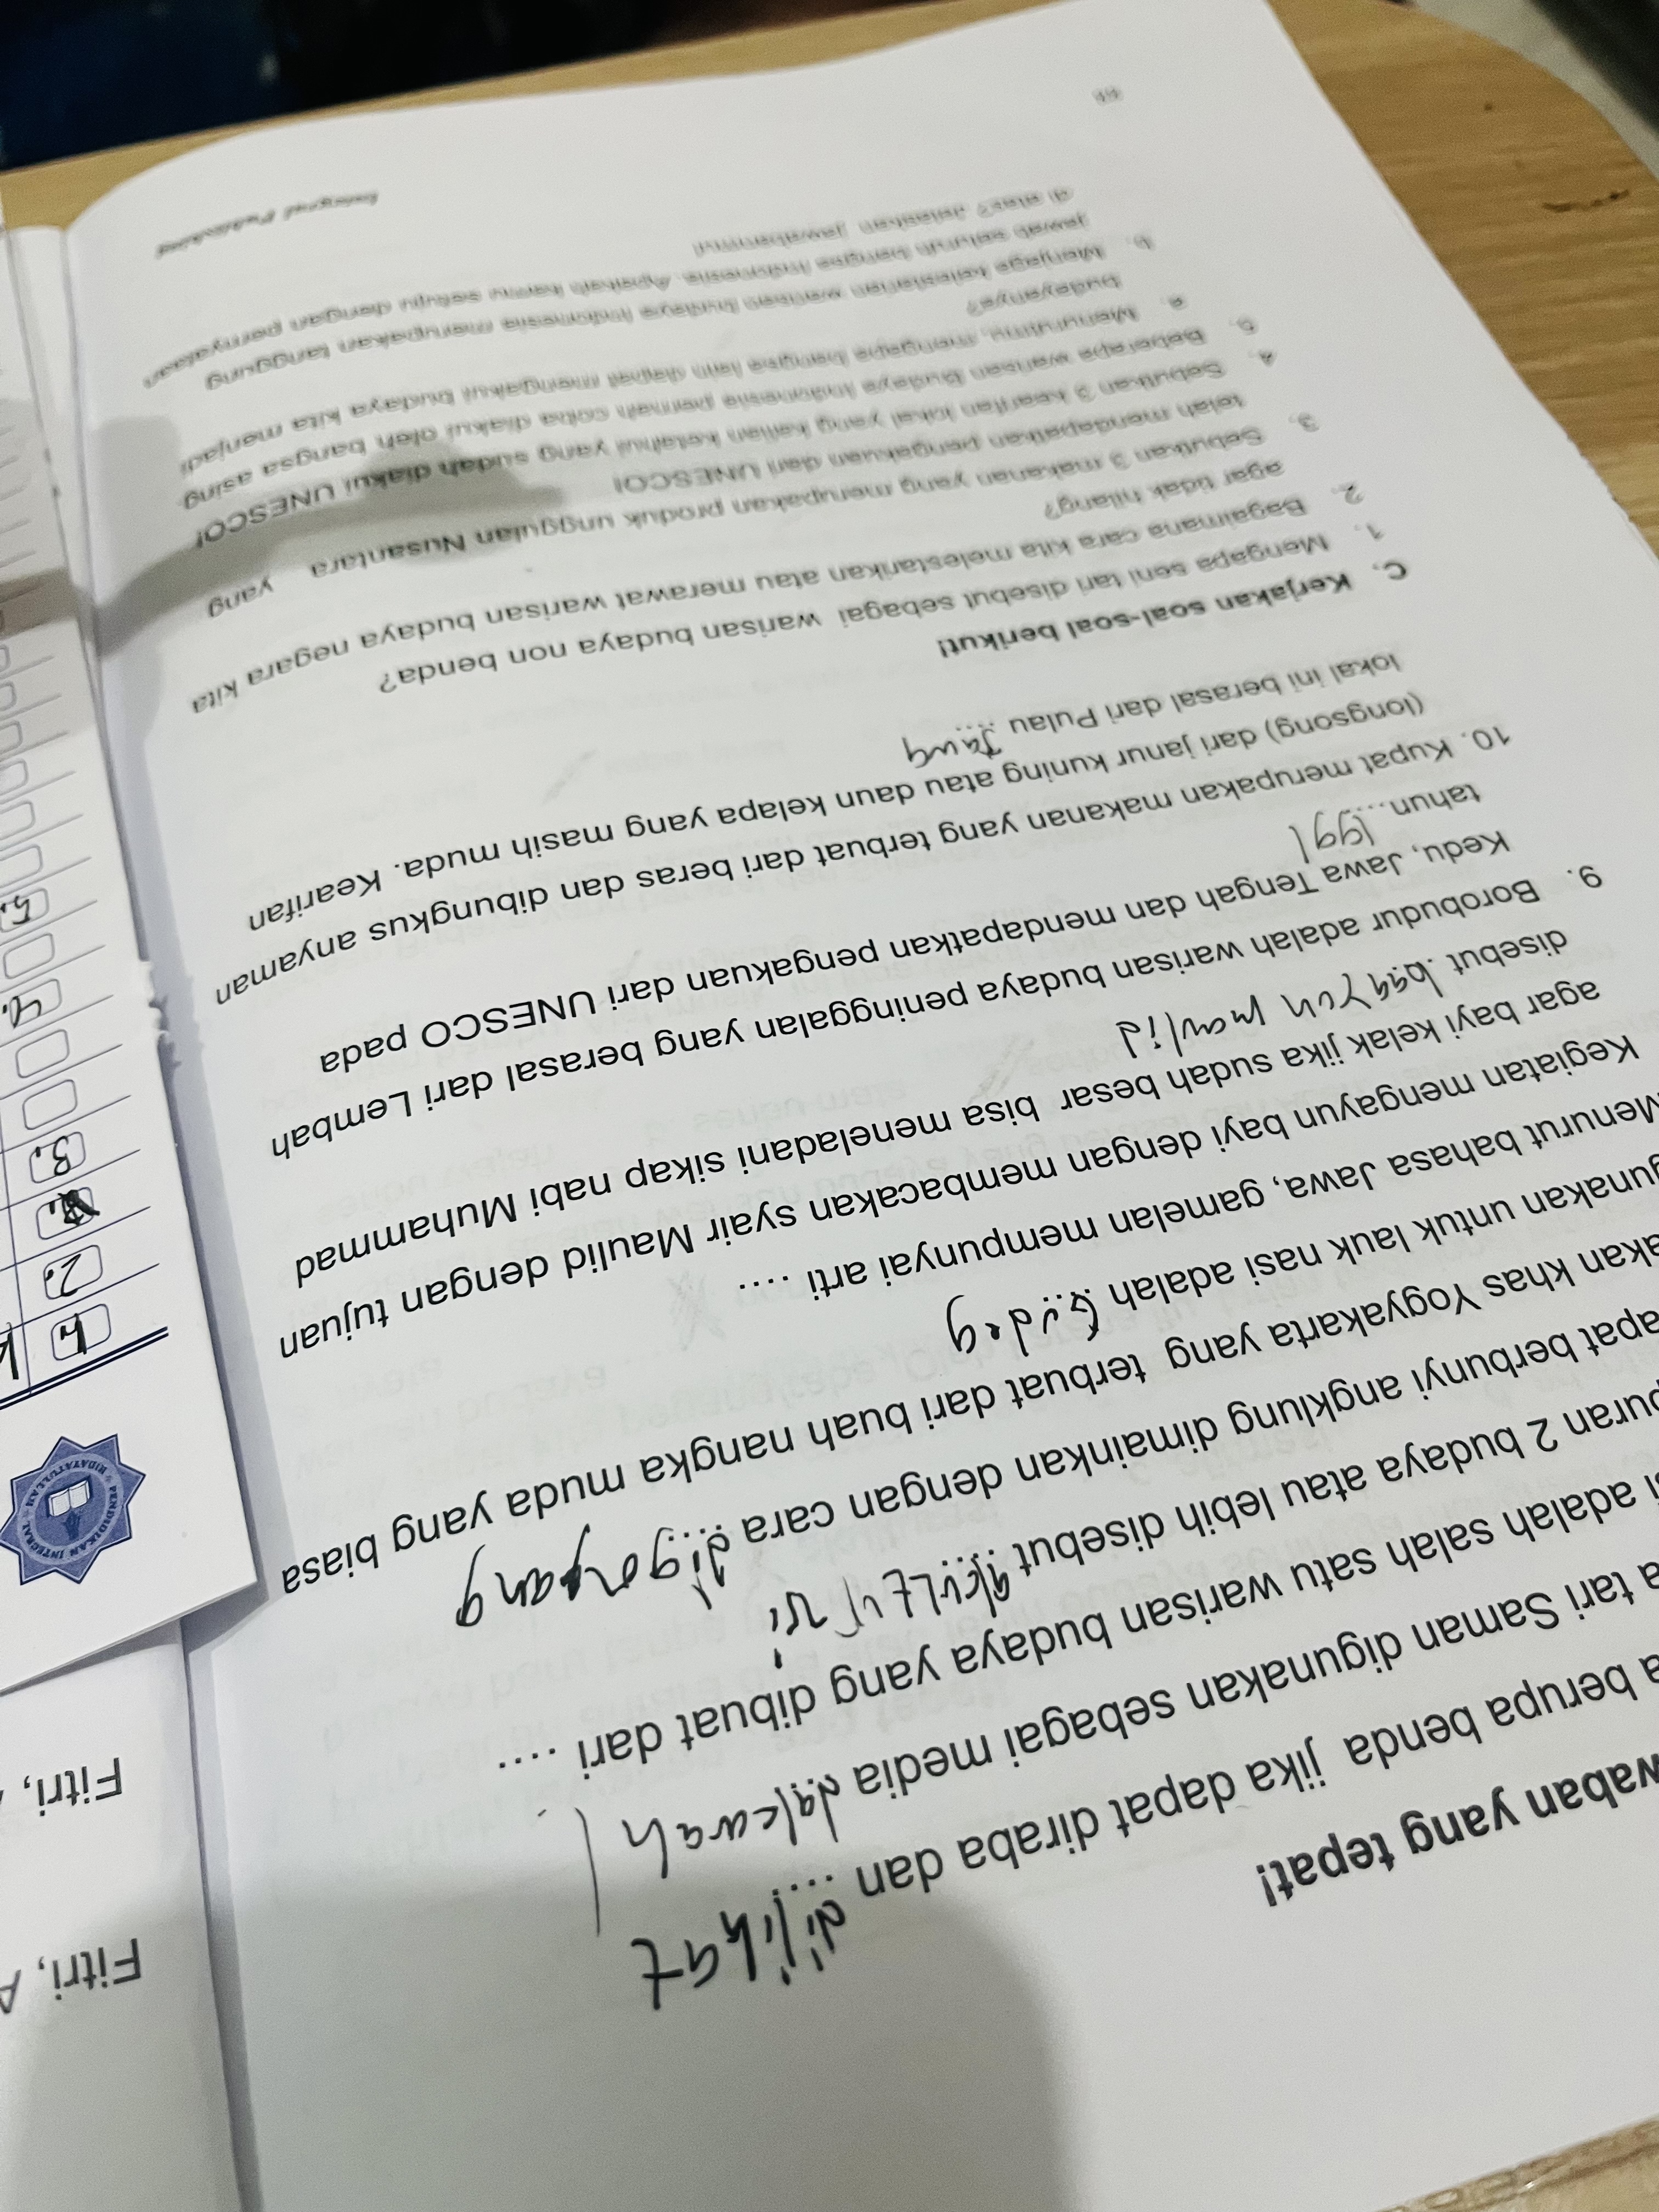 waban yang tepat!
a berupa benda jika dapat diraba dan .... dilihat
a tari Saman digunakan sebagai media dakwah
i adalah salah satu warisan budaya yang dibuat dari ....
puran 2 budaya atau lebih disebut
apat berbunyi angklung dimainkan dengan cara
akan khas Yogyakarta yang terbuat dari buah nangka muda yang biasa
gunakan untuk lauk nasi adalah Gudeg
Menurut bahasa Jawa, gamelan mempunyai arti ....
Kegiatan mengayun bayi dengan membacakan syair Maulid dengan tujuan
agar bayi kelak jika sudah besar bisa meneladani sikap nabi Muhammad
disebut baayun maulid
9. Borobudur adalah warisan budaya peninggalan yang berasal dari Lembah
Kedu, Jawa Tengah dan mendapatkan pengakuan dari UNESCO pada
tahun.... 1991
10. Kupat merupakan makanan yang terbuat dari beras dan dibungkus anyaman
(longsong) dari janur kuning atau daun kelapa yang masih muda. Kearifan
lokal ini berasal dari Pulau .... Jawa
C. Kerjakan soal-soal berikut!
1. Mengapa seni tari disebut sebagai warisan budaya non benda?
2. Bagaimana cara kita melestarikan atau merawat warisan budaya negara kita
agar tidak hilang?
3. Sebutkan 3 makanan yang merupakan produk unggulan Nusantara yang
telah mendapatkan pengakuan dari UNESCO!
4. Sebutkan 3 kearifan lokal yang kalian ketahui yang sudah diakui UNESCO!
5. Beberapa warisan Budaya Indonesia pernah coba diakui oleh bangsa asing.
a. Menurutmu, mengapa bangsa lain dapat mengakui budaya kita menjadi
budayanya?
b. Menjaga kelestarian warisan budaya Indonesia merupakan tanggung
jawab seluruh bangsa Indonesia. Apakah kamu setuju dengan pernyataan
di atas? Jelaskan jawabanmu!
Integral Publishing
PENDIDIKAN INTEGRAL
HIDAYATULLAH
1.
2.
3.
4.
5.
Fitri,
Fitri, A